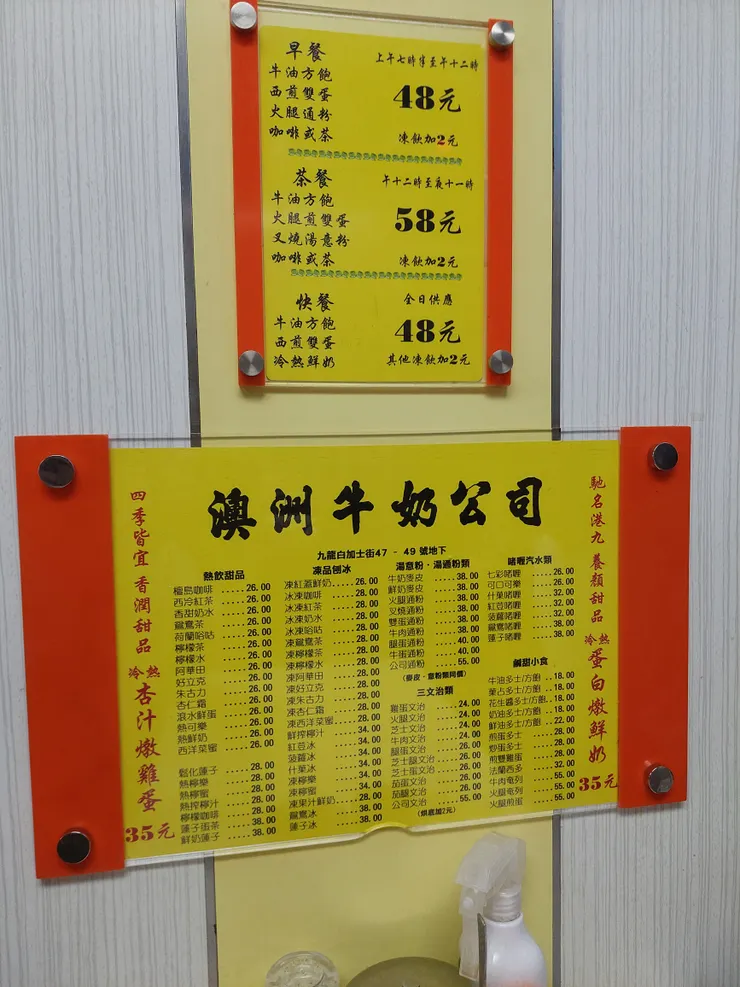 早餐
上午七時半至午十二時
牛油方飽
西煎雙蛋
48元
火腿通粉
咖啡或茶
凍飲加2元
茶餐
午十二時至夜十一時
牛油方飽
火腿煎雙蛋
58元
叉燒湯意粉
咖啡或茶
凍飲加2元
快餐
全日供應
牛油方飽
西煎雙蛋
48元
冷熱鮮奶
其他凍飲加2元
澳洲牛奶公司
九龍白加士街47 - 49號地下
四季皆宜 香潤甜品
冷熱 杏汁燉雞蛋
35元
熱飲甜品
檀島咖啡 ..... 26.00
西冷紅茶 ..... 26.00
香甜奶水 ..... 26.00
鴛鴦茶 ..... 26.00
荷蘭哈咕 ..... 26.00
檸檬茶 ..... 26.00
檸檬水 ..... 26.00
阿華田 ..... 26.00
好立克 ..... 26.00
朱古力 ..... 26.00
杏仁霜 ..... 26.00
滾水鮮蛋 ..... 26.00
熱可樂 ..... 26.00
熱鮮奶 ..... 26.00
西洋菜蜜 ..... 26.00
鬆化蓮子 ..... 28.00
熱檸樂 ..... 28.00
熱檸蜜 ..... 28.00
熱搾檸汁 ..... 28.00
檸檬咖啡 ..... 28.00
蓮子蛋茶 ..... 38.00
鮮奶蓮子 ..... 38.00
凍品刨冰
冰凍咖啡 ..... 28.00
凍紅茶
冰凍奶水 ..... 28.00
冰凍哈咕 ..... 28.00
凍鴛鴦茶 ..... 28.00
凍檸檬茶 ..... 28.00
凍檸檬水 ..... 28.00
凍阿華田 ..... 28.00
凍好立克 ..... 28.00
凍朱古力 ..... 28.00
凍杏仁霜 ..... 28.00
凍西洋菜蜜 ..... 28.00
鮮搾檸汁 ..... 34.00
紅豆冰 ..... 34.00
菠蘿冰 ..... 34.00
什菓冰 ..... 34.00
凍檸樂
凍檸蜜
凍果汁鮮奶
鴛鴦冰
蓮子冰
湯意粉·湯通粉類
牛奶麥皮 ..... 38.00
鮮奶麥皮 ..... 38.00
火腿通粉 ..... 38.00
叉燒通粉 ..... 38.00
雙蛋通粉 ..... 38.00
牛肉通粉 ..... 38.00
腿蛋通粉 ..... 40.00
牛蛋通粉 ..... 40.00
公司通粉 ..... 55.00
(麥皮·意粉類同價)
三文治類
雞蛋文治 ..... 24.00
火腿文治 ..... 24.00
芝士文治 ..... 24.00
牛肉文治 ..... 24.00
腿蛋文治 ..... 26.00
芝士腿文治 ..... 26.00
芝士蛋文治 ..... 26.00
茄蛋文治 ..... 26.00
茄腿文治 ..... 26.00
公司文治 ..... 55.00
(烘底加2元)
啫喱汽水類
七彩啫喱 ..... 26.00
可口可樂 ..... 26.00
什菓啫喱 ..... 32.00
紅豆啫喱 ..... 32.00
菠蘿啫喱 ..... 32.00
鴛鴦啫喱 ..... 38.00
蓮子啫喱 ..... 38.00
鹹甜小食
牛油多士/方飽 .. 18.00
菓占多士/方飽 .. 18.00
花生醬多士/方飽 .. 18.00
奶油多士/方飽 .. 18.00
鮮油多士/方飽 .. 22.00
煎蛋多士 ..... 28.00
炒蛋多士 ..... 28.00
煎雙雞蛋 ..... 28.00
法蘭西多 ..... 32.00
牛肉奄列 ..... 55.00
火腿奄列 ..... 55.00
火腿煎蛋 ..... 55.00
馳名港九 養顏甜品
冷熱 蛋白燉鮮奶
35元